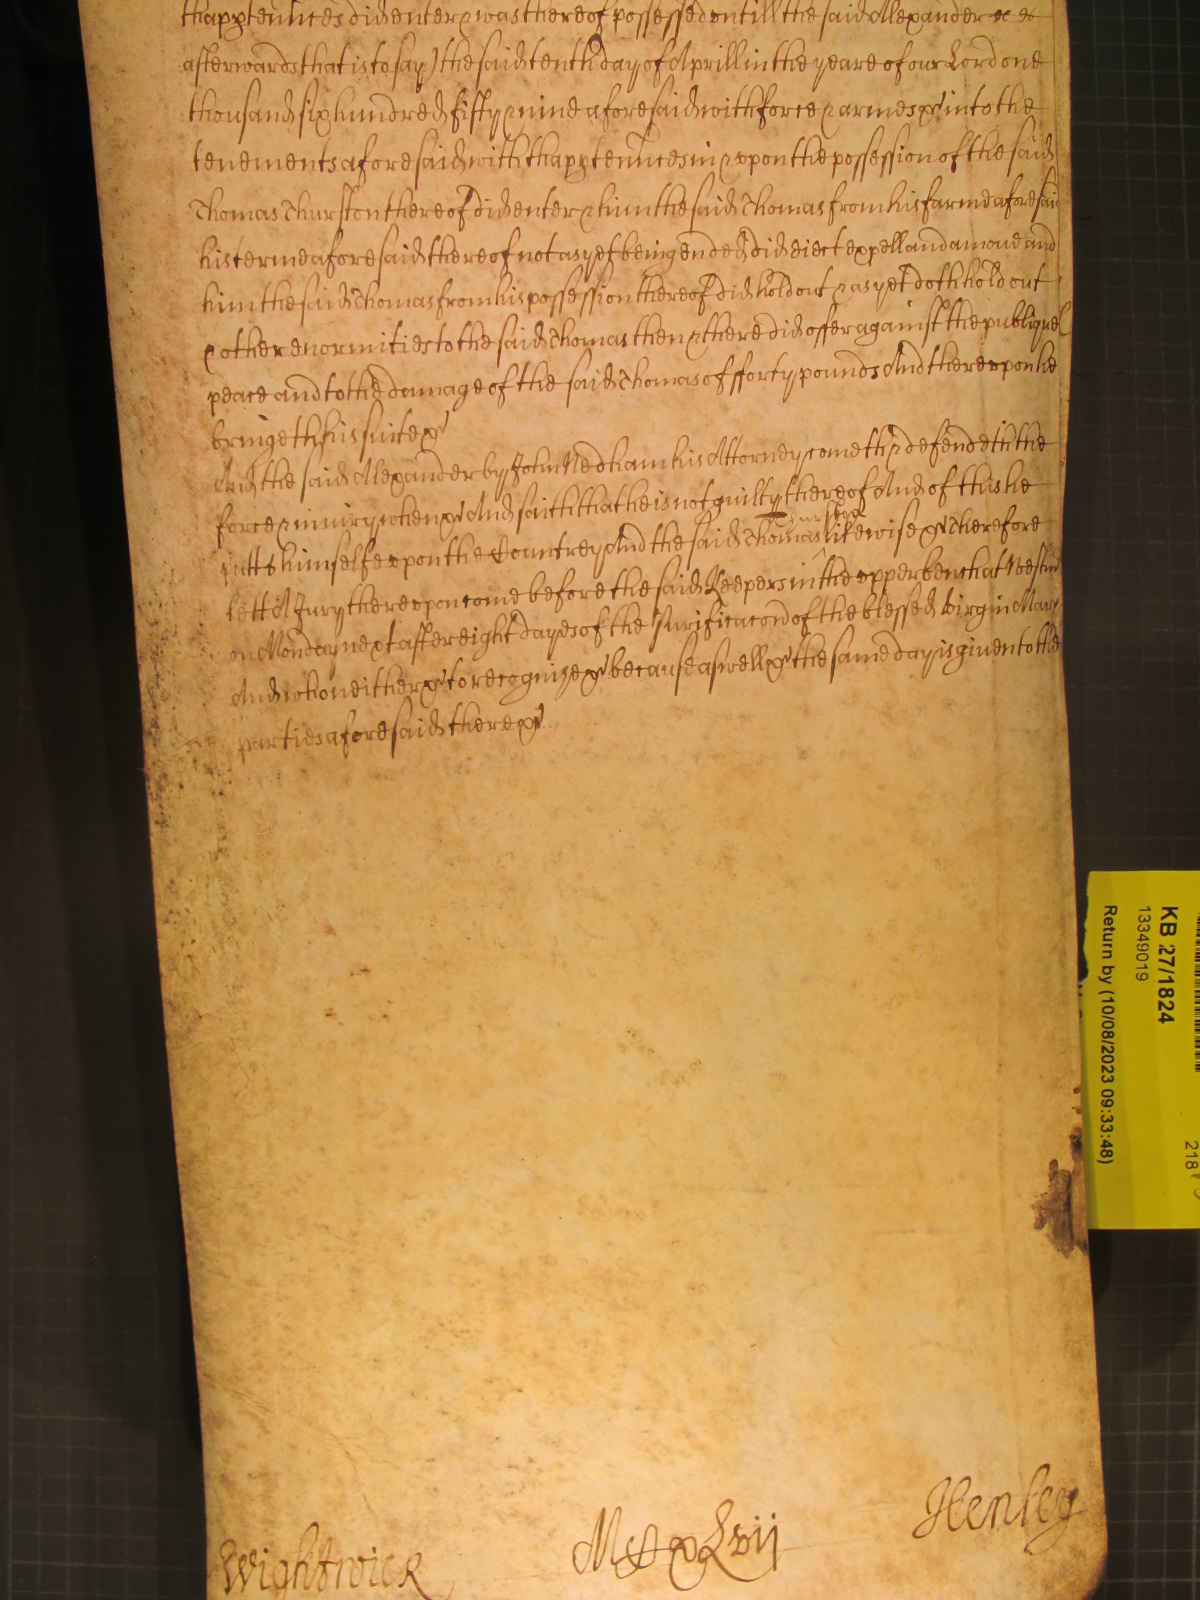 thapptennces did enter & was thereof possessed untill the said Allexander &c &c
afterwards that is to say) the said tenth day of Aprill in the yeare of our Lord one
thousand six hundred fifty & nine aforesaid with force & armes &c into the
tenements aforesaid with thapptennces in & vpon the possession of the said
Thomas Thurston thereof did enter & him the said Thomas from his farme aforesaid
his terme aforesaid thereof not as yet being ended did eiect expell and amove and
him the said Thomas from his possession thereof did hold out & as yet doth hold out
& other enormities to the said Thomas then & there did offer against the publique
peace and to the damage of the said Thomas of fforty pounds And therevpon he
bringeth his suite &c
And the said Allexander by John Nedham his Attorney cometh & defendeth the
force & iniury when &c And saith that he is not guilty thereof And of this he
putts himselfe vpon the Countrey And the said Thomas Thurston likewise &c Therefore
lett A Jury therevpon come before the said Keepers in the vpper bench at Westm
on Monday next after eight dayes of the Purificacon of the blessed Virgin Mary
And who neither &c to recognize &c because aswell &c the same day is given to the
parties aforesaid there &c
Wightwick
Henley
KB 27/1824
13349019
Return by (10/08/2023 09:33:48)